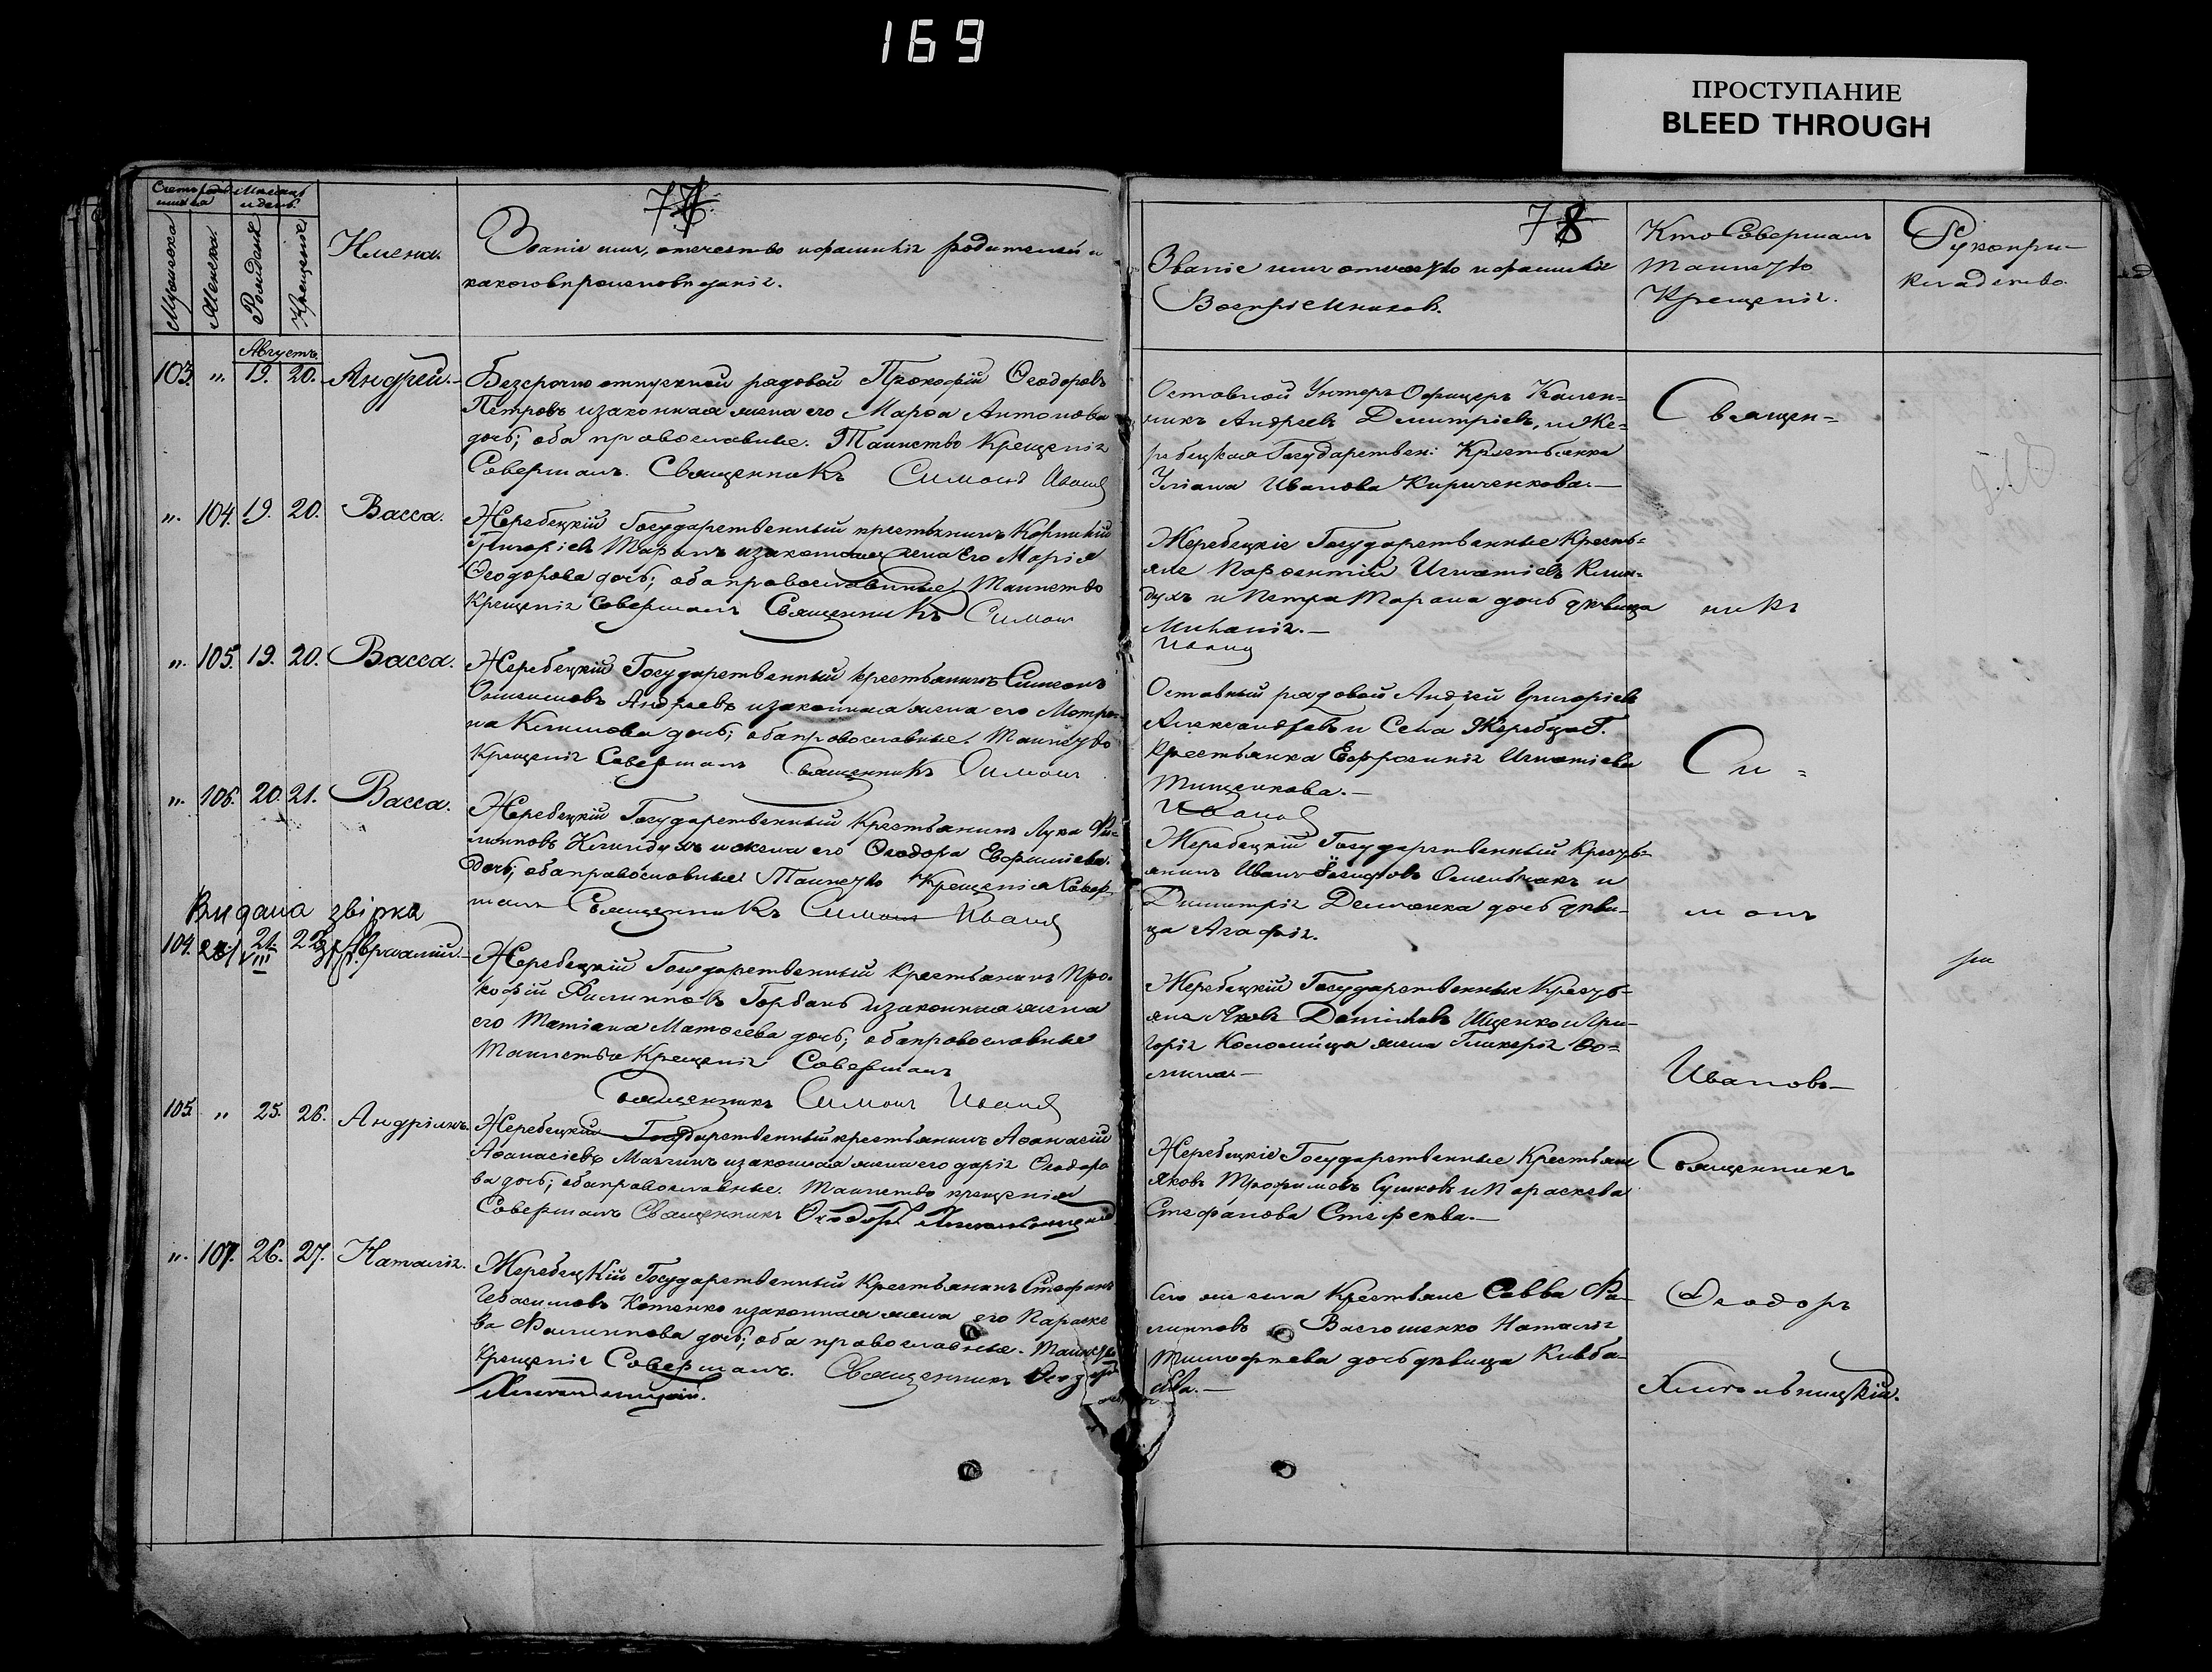 169
ПРОСТУПАНИЕ
BLEED THROUGH
77
Счетъ родившихся
Мѣсяцъ и день.
Мужеска
Женска.
Рожденія
Крещенія
Имена.
Званіе имя, отечество и фамилія родителей и
какого вѣроисповѣданія.
Августъ.
103. ". 19. 20. Андрей.
Безсрочно отпускной рядовой Прокофій Ѳеодоровъ
Петровъ и законная жена его Марѳа Антонова
дочь; оба православные. Таинство Крещенія
Совершалъ Священникъ Симонъ Ивановъ
". 104. 19. 20. Васса.
Жеребецкій Государственный крестьянинъ Корнилій
Григорьевъ Таранъ и законная жена Его Марія
Ѳеодорова дочь; оба православные Таинство
Крещенія Совершалъ Священникъ Симонъ
". 105. 19. 20. Васса.
Жеребецкій Государственный крестьянинъ Симеонъ
Андреевъ и законная жена его Матро-
на Климова дочь; оба православные. Таинство
Крещенія Совершалъ Священникъ Симонъ
". 106. 20. 21. Васса.
Жеребецкій Государственный Крестьянинъ Лука Фи-
липповъ и жена его Ѳеодора Евфиміева
дочь; оба православные Таинство Крещенія Совер-
шалъ Священникъ Симонъ Ивановъ
Видана звірка
104. 21. 22.
Жеребецкій Государственный Крестьянинъ Про-
кофій Филипповъ Горбань и законная жена
его Татіана Матѳеева дочь; оба православные
Таинство Крещенія Совершалъ
Священникъ Симонъ Ивановъ
105 " 25. 26. Андріанъ.
Жеребецкій Государственный крестьянинъ Аѳанасій
Аѳанасіевъ и законная жена его Дарія Ѳеодоро
ва дочь; оба православные. Таинство крещенія
Совершалъ Священникъ Ѳеодоръ Хмельницкій
". 107. 26. 27. Наталія.
Жеребецкій Государственный Крестьянинъ Стефанъ
Герасимовъ Котенко и законная жена его Параске
ва Филиппова дочь; оба православные. Таинство
Крещенія Совершалъ. Священникъ Ѳеодоръ
Хмельницкій.
78
Званіе имя отечество и фамилія
Воспріемниковъ.
Кто Совершалъ
таинство
Крещенія.
Рукопри-
кладство.
Отставной Унтеръ Офицеръ Калин-
никъ Андреевъ Димитріевъ, и Же-
ребецкая Государствен: Крестьянка
Уліана Иванова Кириченкова.—
Жеребецкіе Государственные Кресть-
яне Парѳентій Игнатіевъ Клин-
духъ и Петра Тарана дочь дѣвица
Меланія.—
Ивановъ
Отставный рядовой Андрей Григоріевъ
Александровъ и Села Жеребца Г.
Крестьянка Евфросинія Игнатіева
Тищенкова.—
Ивановъ
Жеребецкій Государственный Кресть-
янинъ Иванъ Омельчакъ и
Димитрія Демченка дочь дѣви-
ца Агафія.
Жеребецкій Государственные Кресть-
яне Яковъ Даніиловъ Ищенко и Гри-
горія Коломійца жена Гликерія Ѳо-
мина—
Жеребецкіе Государственные Крестьяне
Яковъ Трофимовъ Сушковъ и Параскева
Стефанова
Того же села Крестьяне Савва Фи-
липповъ Васюшенко Наталія
Тимофеева дочь дѣвица
Священ-
никъ
Си-
монъ
Ивановъ—
Священникъ
Ѳеодоръ
Хмельницкій.